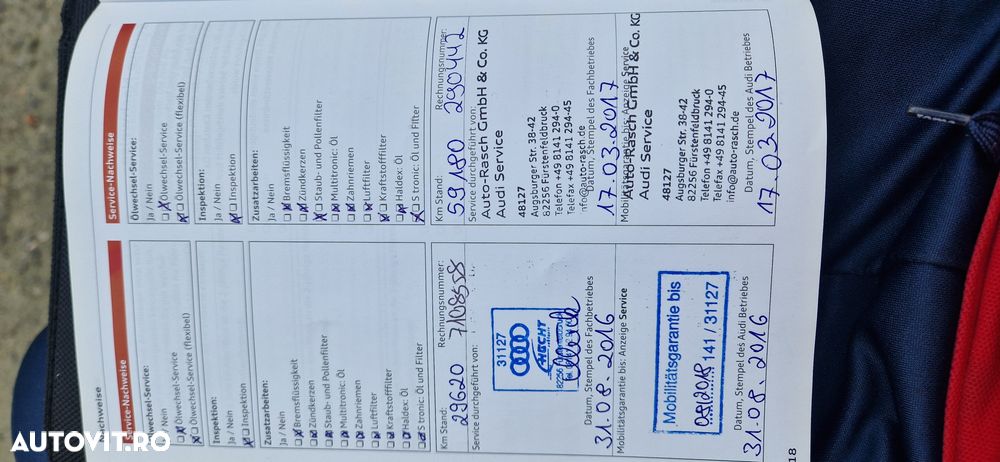 Service-Nachweise
Ölwechsel-Service:
Ja / Nein
Ölwechsel-Service
Ölwechsel-Service (flexibel)
Inspektion:
Ja / Nein
Inspektion
Zusatzarbeiten:
Ja / Nein
Bremsflüssigkeit
Zündkerzen
Staub- und Pollenfilter
Multitronic: Öl
Zahnriemen
Luftfilter
Kraftstofffilter
Haldex: Öl
S tronic: Öl und Filter
Km Stand: Rechnungsnummer:
29620 7108558
Service durchgeführt von:
31127
HECHT
Datum, Stempel des Fachbetriebes
31.08.2016
Mobilitätsgarantie bis: Anzeige Service
Mobilitätsgarantie bis
08/2018 141 / 31127
Datum, Stempel des Audi Betriebes
31.08.2016
18
Service-Nachweise
Ölwechsel-Service:
Ja / Nein
Ölwechsel-Service
Ölwechsel-Service (flexibel)
Inspektion:
Ja / Nein
Inspektion
Zusatzarbeiten:
Ja / Nein
Bremsflüssigkeit
Zündkerzen
Staub- und Pollenfilter
Multitronic: Öl
Zahnriemen
Luftfilter
Kraftstofffilter
Haldex: Öl
S tronic: Öl und Filter
Km Stand: Rechnungsnummer:
59180 290442
Service durchgeführt von:
Auto-Rasch GmbH & Co. KG
Audi Service
48127
Augsburger Str. 38-42
82256 Fürstenfeldbruck
Telefon +49 8141 294-0
Telefax +49 8141 294-45
info@auto-rasch.de
Datum, Stempel des Fachbetriebes
17.03.2017
Mobilitätsgarantie bis: Anzeige Service
Auto-Rasch GmbH & Co. KG
Audi Service
48127
Augsburger Str. 38-42
82256 Fürstenfeldbruck
Telefon +49 8141 294-0
Telefax +49 8141 294-45
info@auto-rasch.de
Datum, Stempel des Audi Betriebes
17.03.2017
AUTOVIT.RO